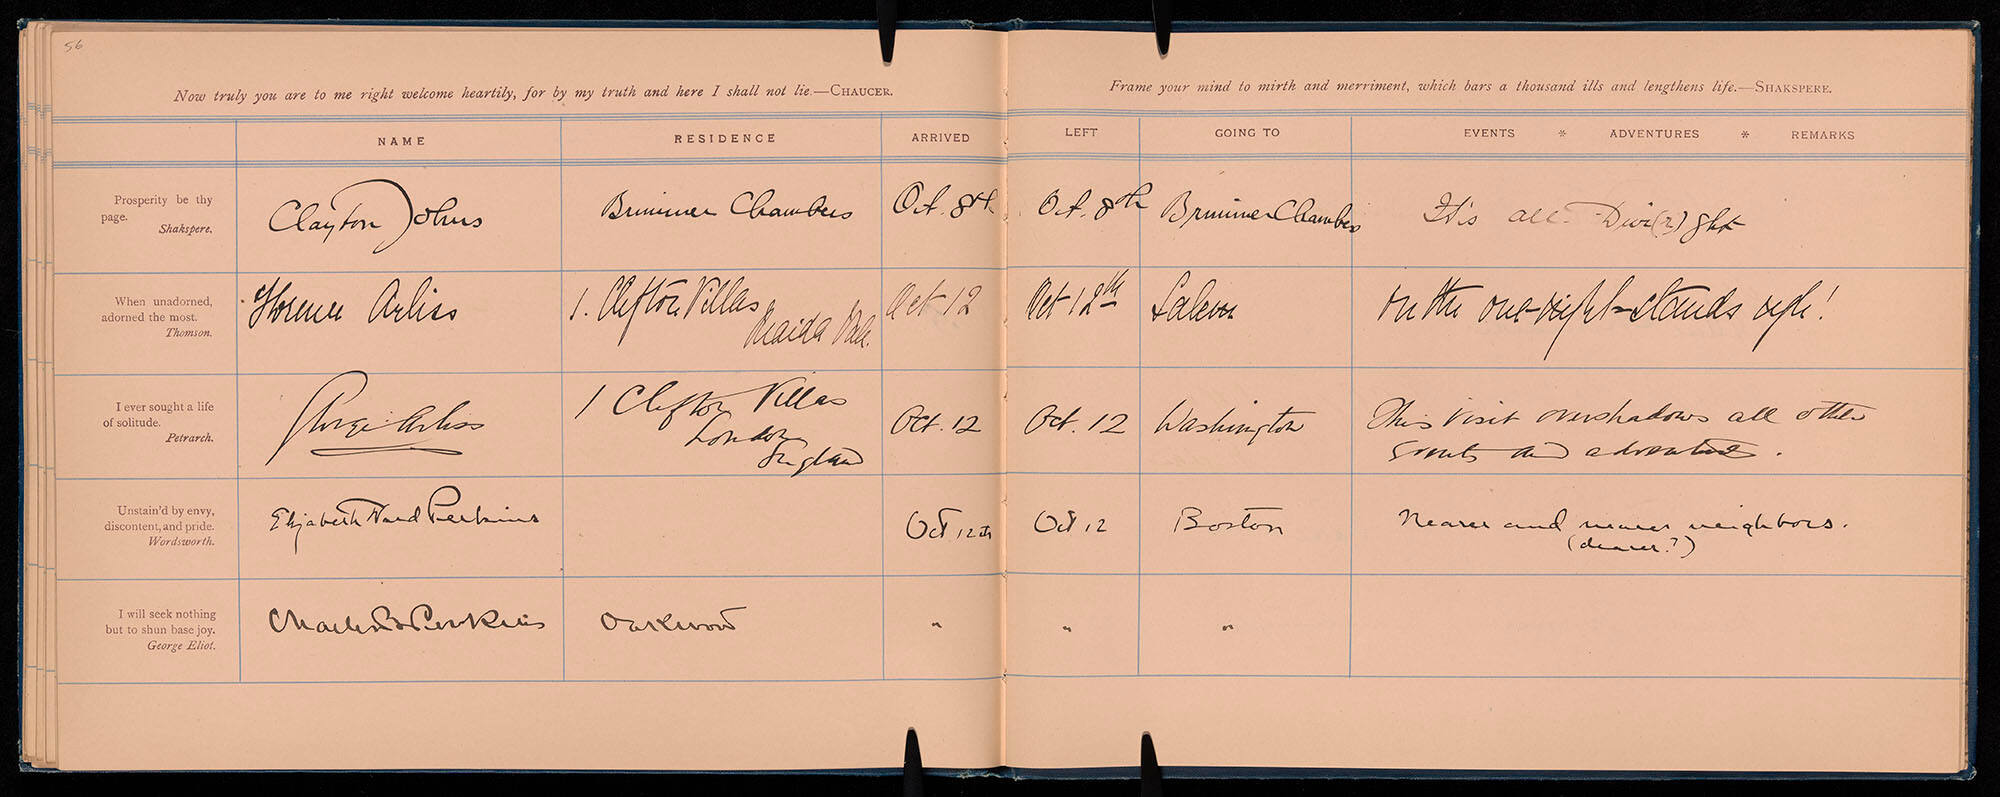 56
Now truly you are to me right welcome heartily, for by my truth and here I shall not lie.—CHAUCER.
Frame your mind to mirth and merriment, which bars a thousand ills and lengthens life.—SHAKSPERE.
NAME RESIDENCE ARRIVED LEFT GOING TO EVENTS * ADVENTURES * REMARKS
Prosperity be thy
page.
Shakspere.
Clayton Johns Brimmer Chambers Oct. 8th Oct. 8th Brimmer Chambers It's all Divi(r)ght
When unadorned,
adorned the most.
Thomson.
Florence Arliss 1. Clifton Villas
Maida Vale. Oct 12 Oct 12th Salem On the one-night-stands
I ever sought a life
of solitude.
Petrarch.
George Arliss 1 Clifton Villas
London
England Oct. 12 Oct. 12 Washington This visit overshadows all other
events and adventures.
Unstain'd by envy,
discontent, and pride.
Wordsworth.
Elizabeth Ward Perkins Oct 12th Oct 12 Boston Nearer and nearer neighbors.
(dearer?)
I will seek nothing
but to shun base joy.
George Eliot.
Charles B Perkins Oakwood " " "